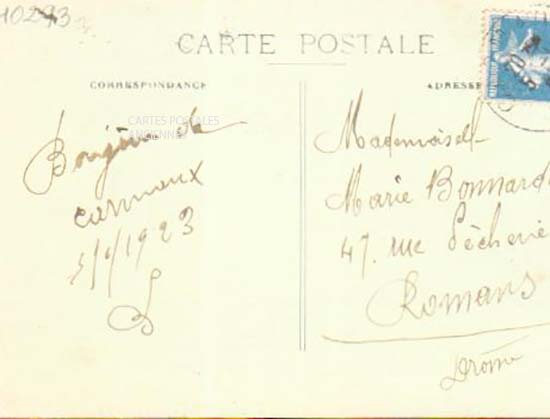 10293
CARTE POSTALE
CORRESPONDANCE
ADRESSE
CARTES POSTALES
ANCIENNES
Bonjour de
carmaux
3/9/1923
Mademoisel
Marie Bonnard
47, rue Pêcherie
Romans
Drôme